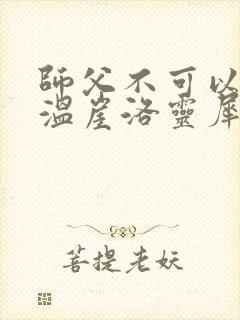 師父不可以
溫崖洛靈犀
菩提老妖